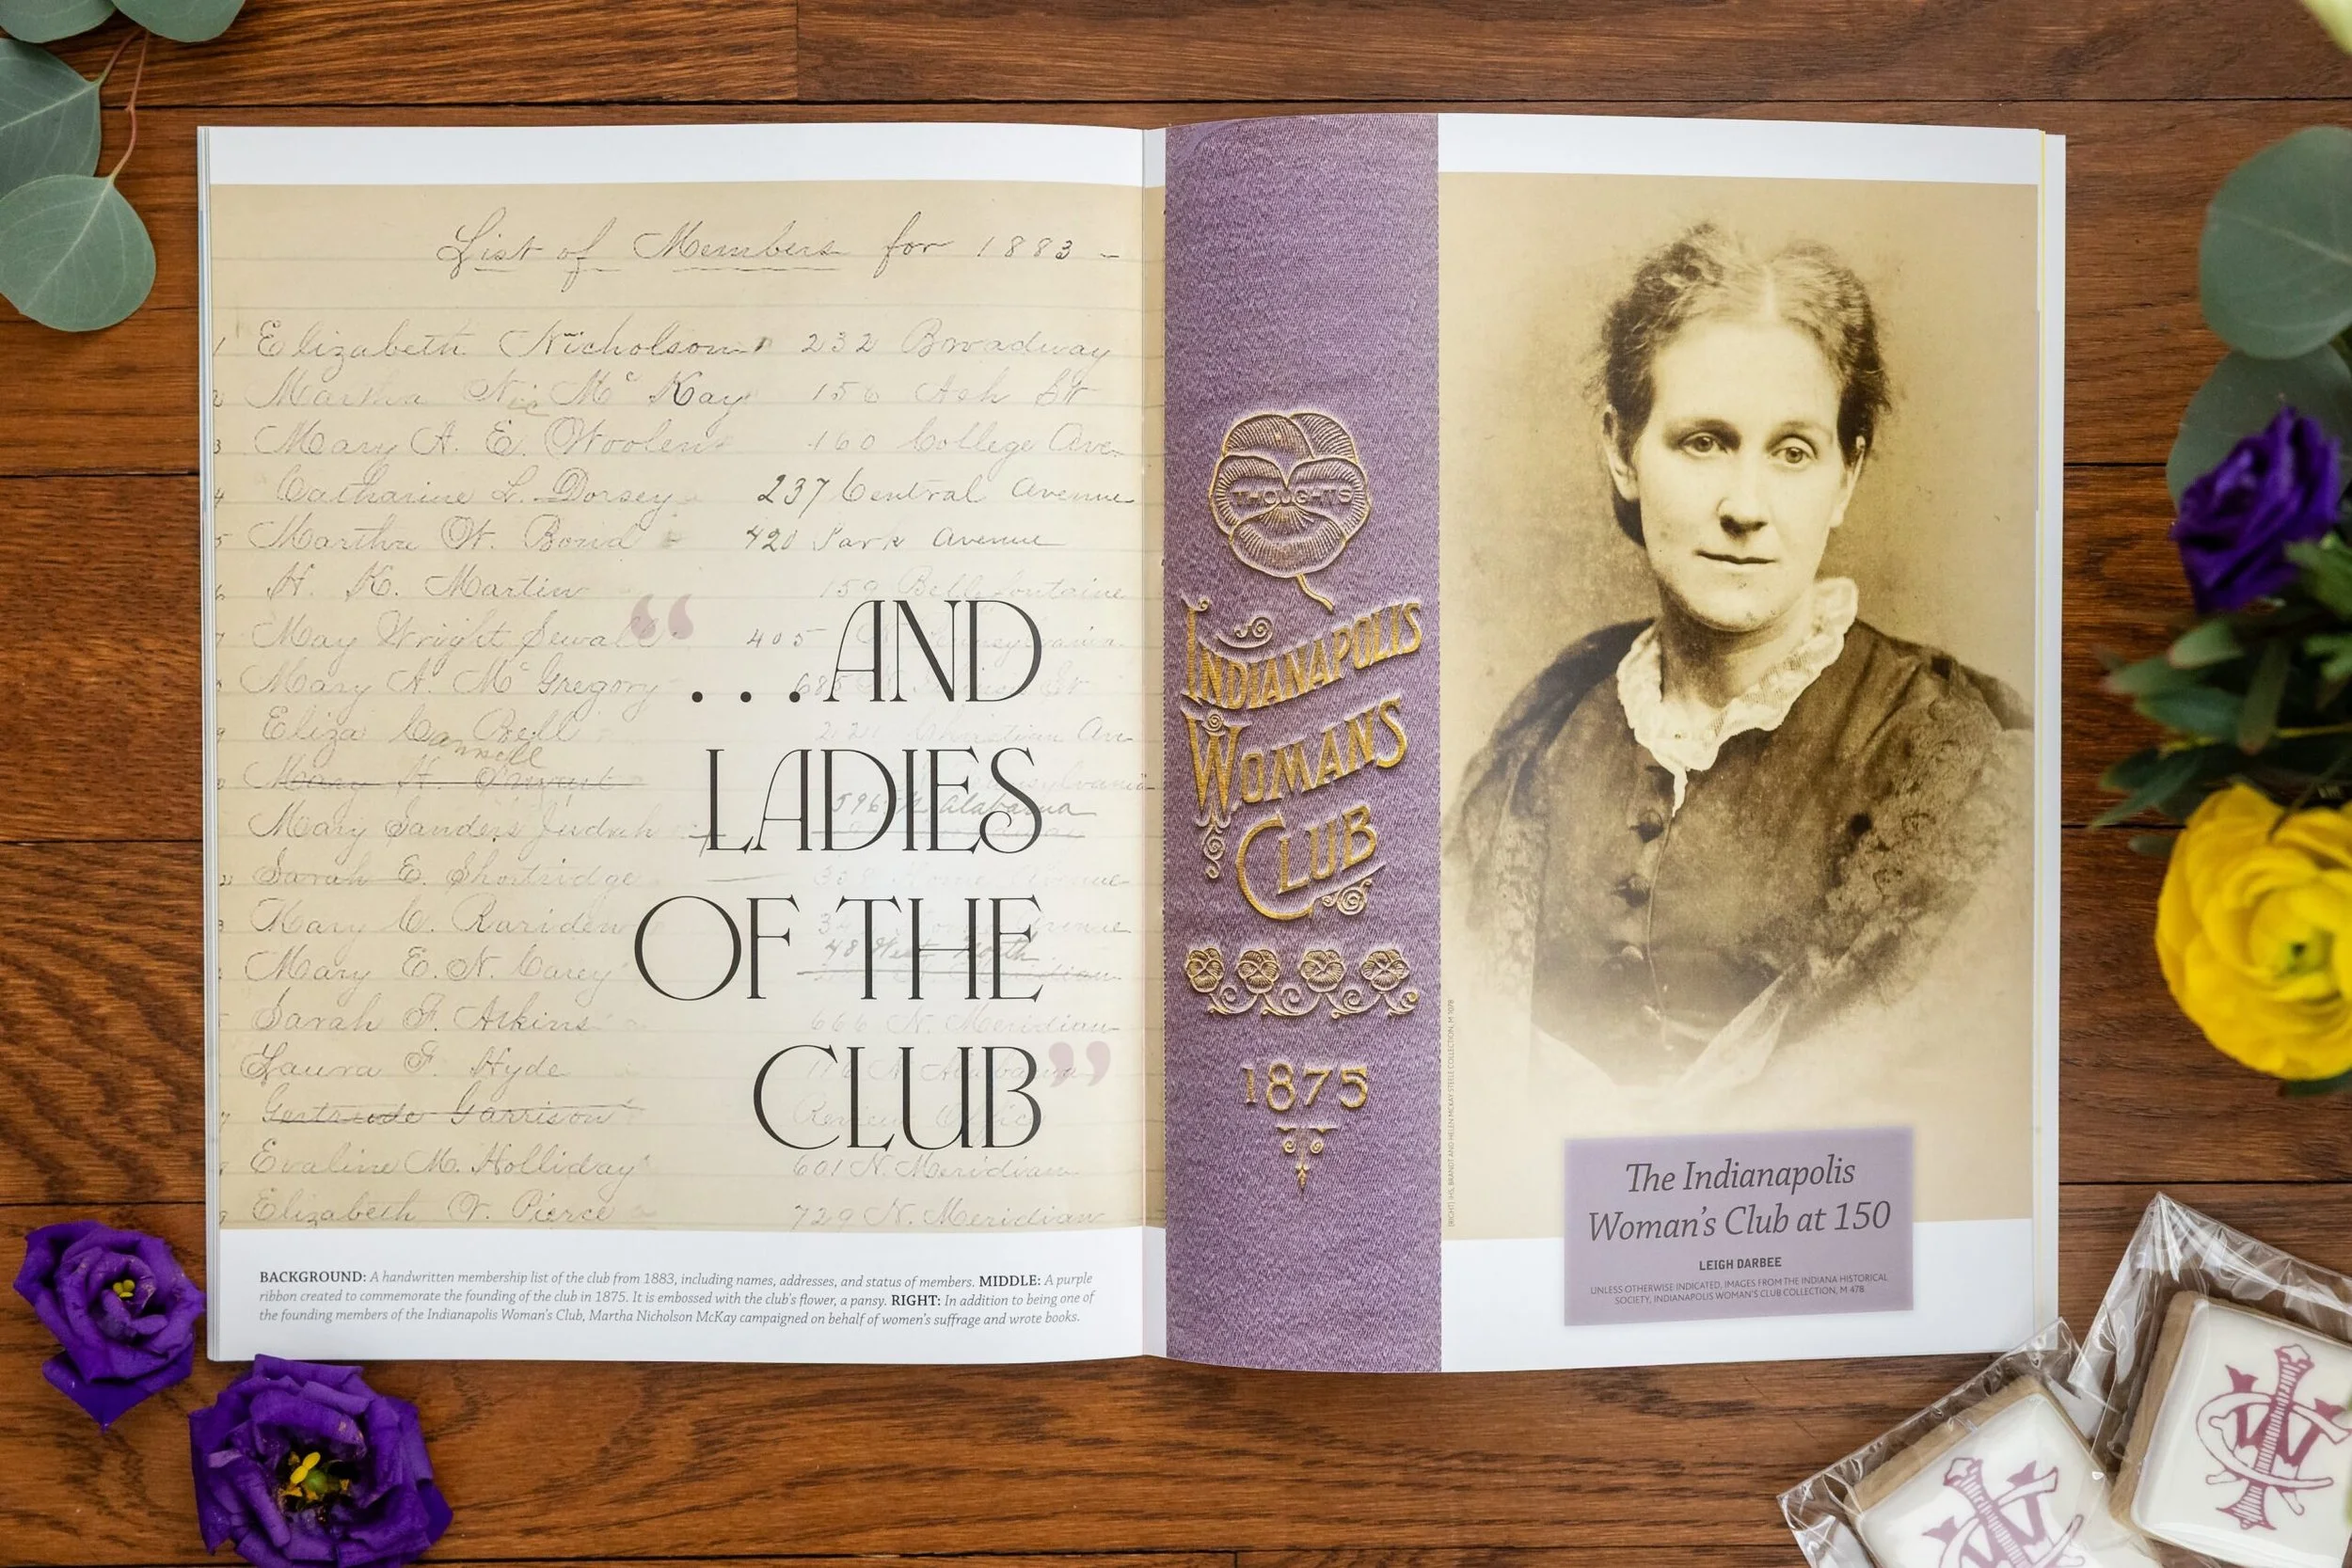 List of Members for 1883 -
1 Elizabeth Nicholson 232 Broadway
2 Martha Nic Mc Kay 156 Ash St
3 Mary A. E. Woolen 160 College Ave.
4 Catharine L. Dorsey 237 Central Avenue
5 Martha W. 420 Park Avenue
6 H. K. Martin 159 Bellefontaine
7 May Wright Sewall 405
Mary A. Mc Gregory
9 Eliza Bell
Mary H.
Mary Sanders Judah 596 N Alabama
Sarah E. Shortridge Home Avenue
3 Mary C. Rariden
Mary E. N. Carey 48 West North
Sarah F. Atkins 666 N. Meridian
Laura F. Hyde
7 Gertrude Garrison
Evaline M. Holliday 601 N. Meridian
9 Elizabeth V. Pierce 729 N. Meridian
“
...AND
LADIES
OF THE
CLUB”
BACKGROUND: A handwritten membership list of the club from 1883, including names, addresses, and status of members. MIDDLE: A purple
ribbon created to commemorate the founding of the club in 1875. It is embossed with the club's flower, a pansy. RIGHT: In addition to being one of
the founding members of the Indianapolis Woman's Club, Martha Nicholson McKay campaigned on behalf of women's suffrage and wrote books.
THOUGHTS
INDIANAPOLIS
WOMANS
CLUB
1875
(RIGHT) IHS, BRANDT AND HELEN MCKAY STEELE COLLECTION, M
The Indianapolis
Woman's Club at 150
LEIGH DARBEE
UNLESS OTHERWISE INDICATED, IMAGES FROM THE INDIANA HISTORICAL
SOCIETY, INDIANAPOLIS WOMAN'S CLUB COLLECTION, M 478